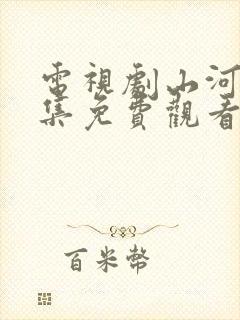 電視劇山河
集免費觀看
百米幣